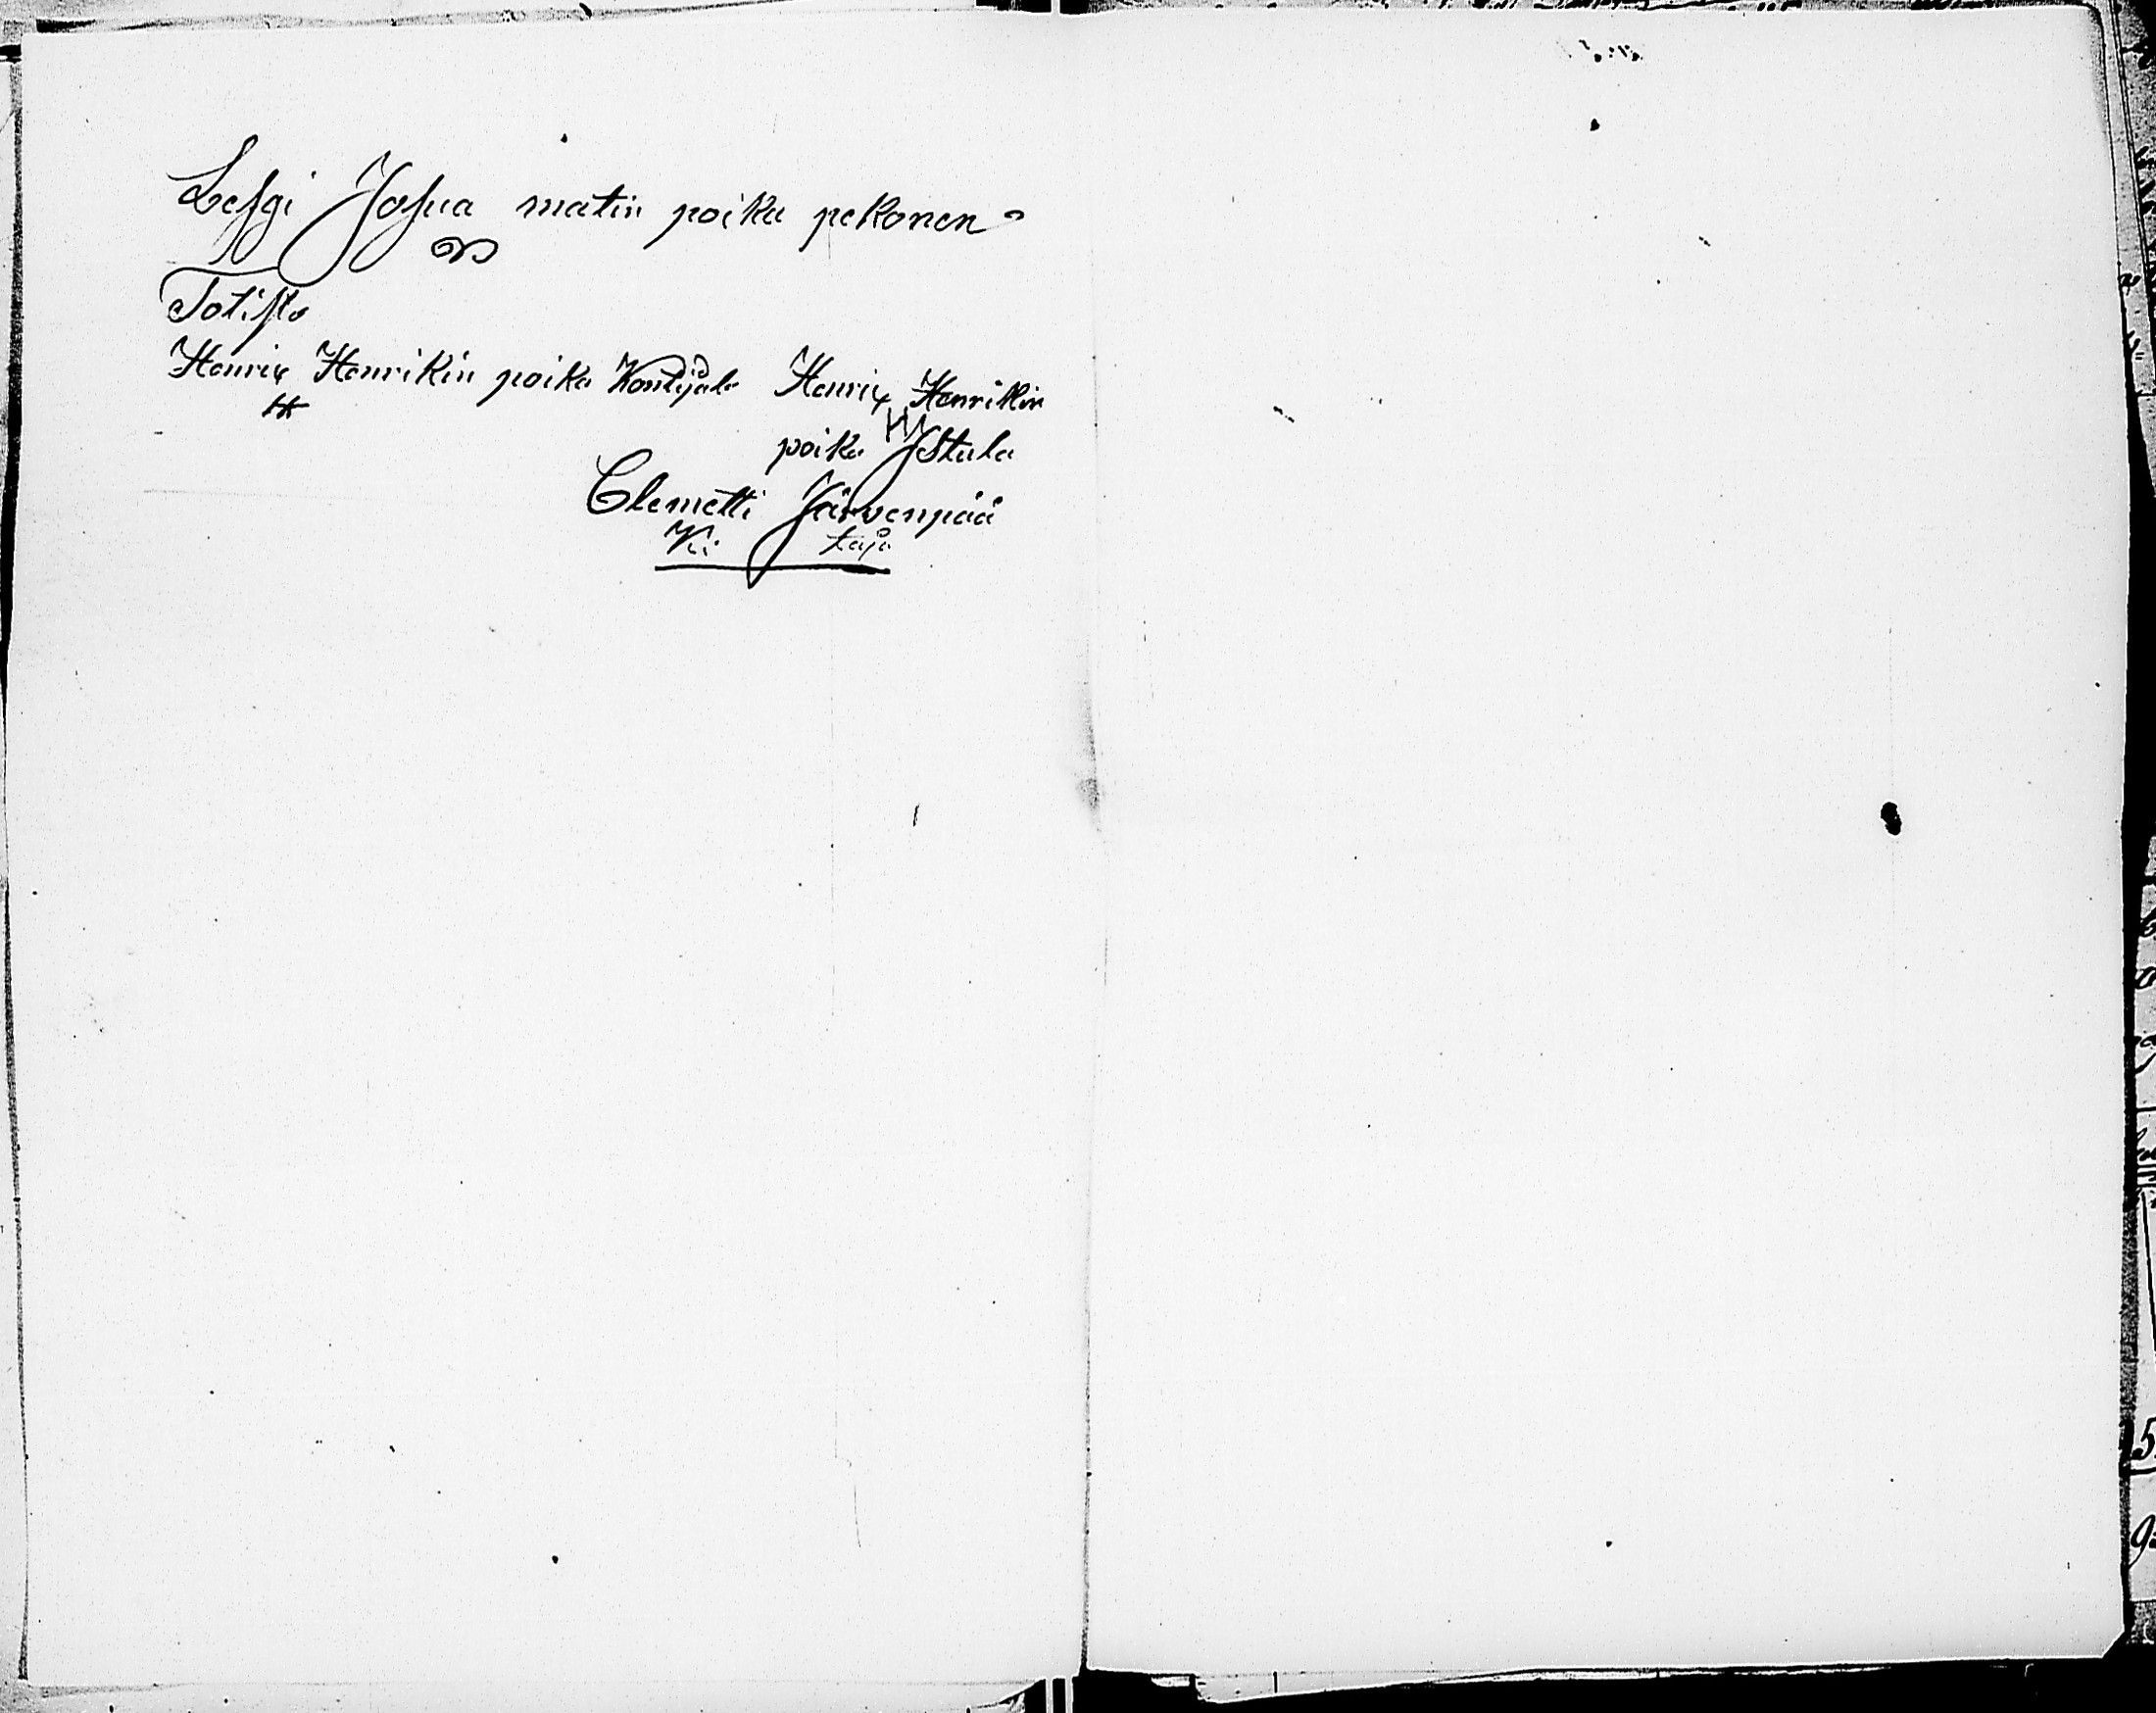 Leski Josua matin poika pekonen
Totista
Henrix Henrikin poika Kontijala Henrix Henrikin
HH
poika Jstala
Clemetti Järvenpää
Ki taja